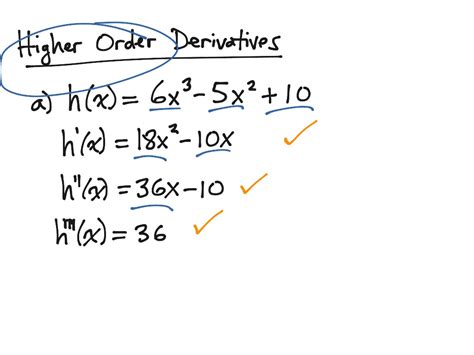 Higher Order Derivatives
a) h(x) = 6x³ - 5x² + 10
h'(x) = 18x² - 10x
h''(x) = 36x - 10
h'''(x) = 36